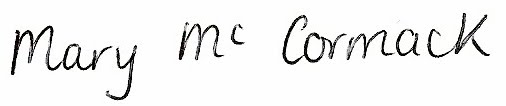 Mary Mc Cormack